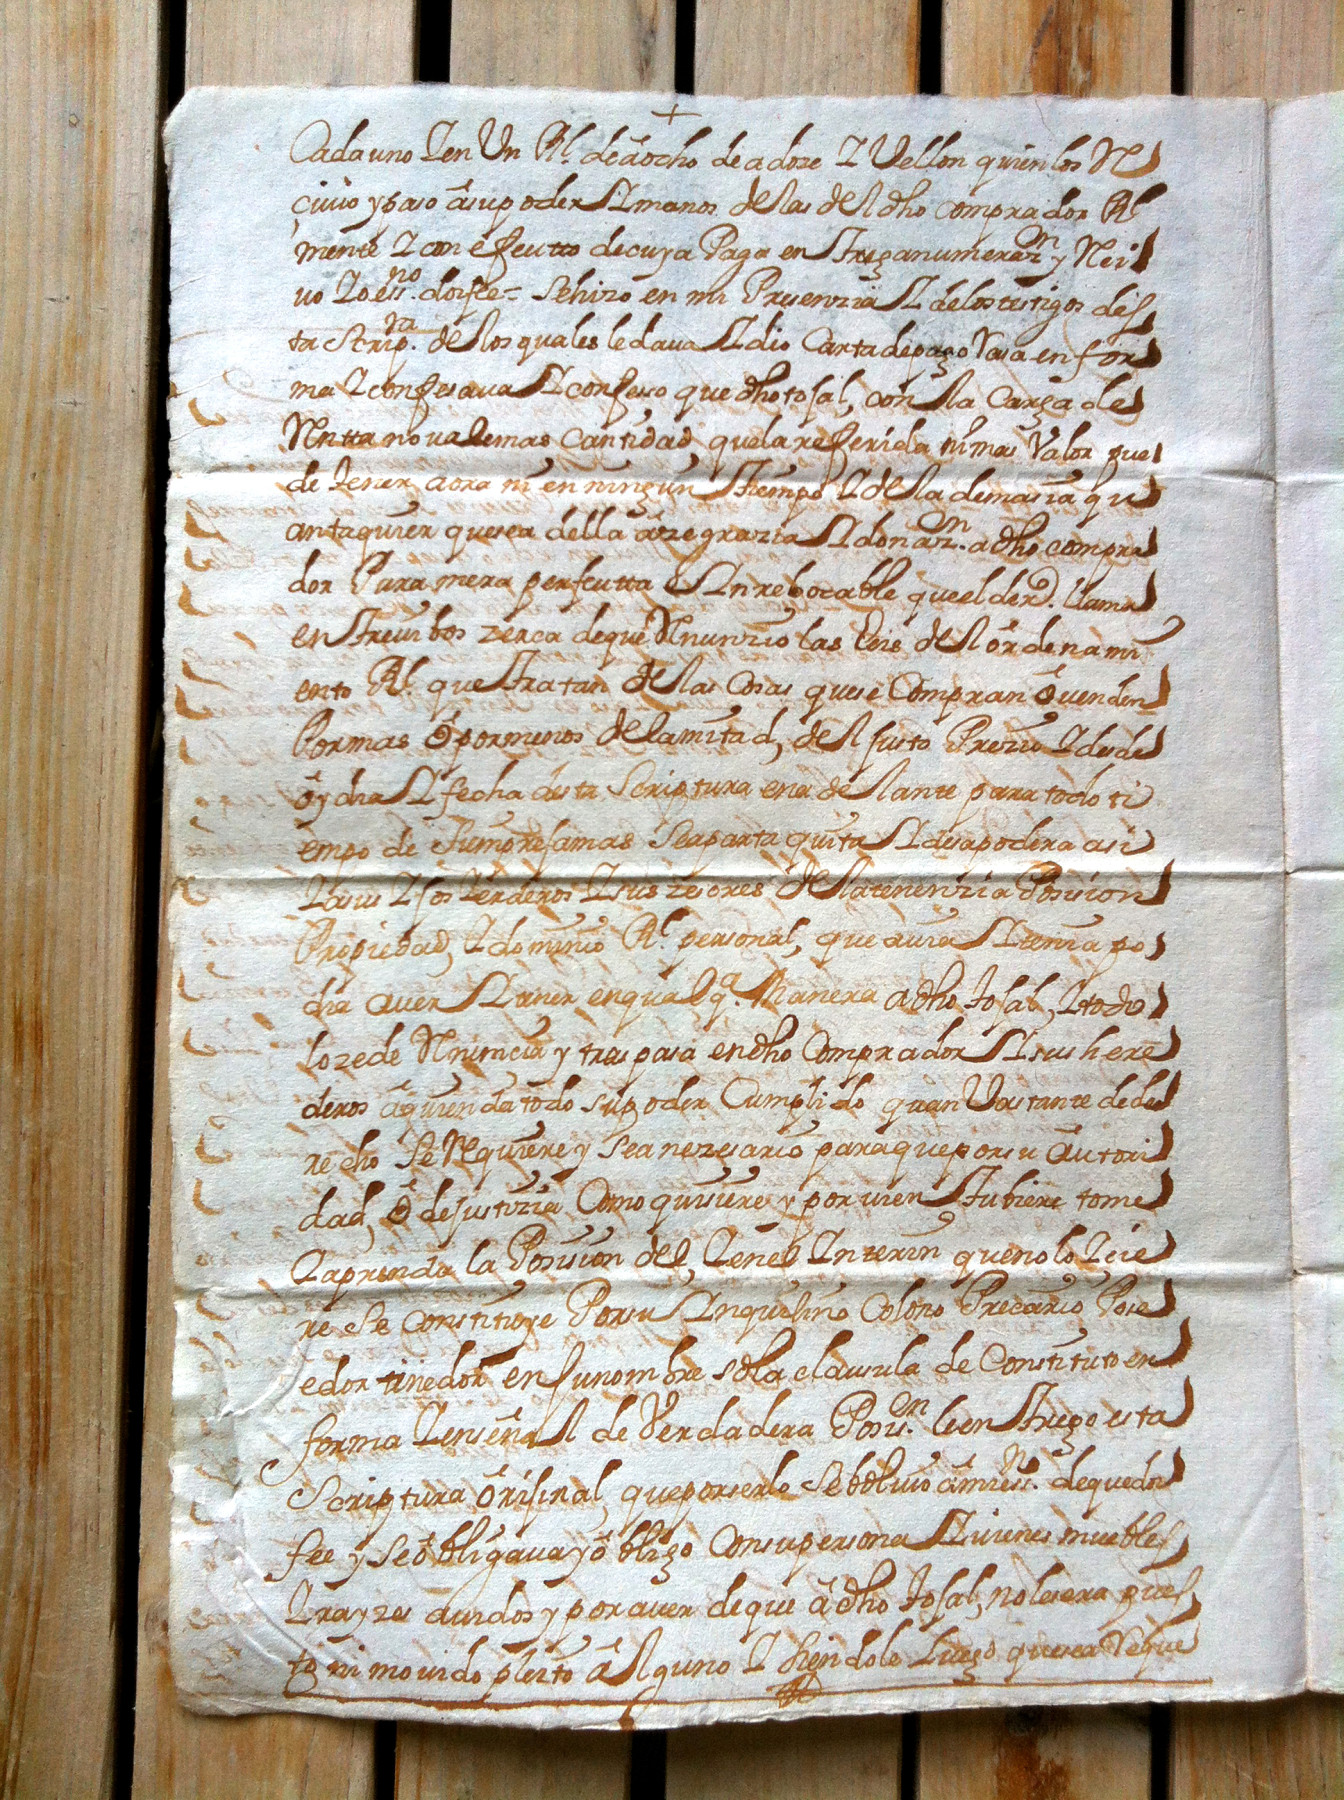 Cada uno Y en Un Rl. de â ocho de a doze Y Vellon quien los Re
civio y paso â su poder Y manos de las del dho comprador Rl
mente Y con efeutto de cuya Paga entrega numerazn y Reci
uo Yo essno. doi fee = Se hizo en mi Presenzia Y de los testigos des
ta Scripra. de los quales le daua Y dio Carta de pago Vasa en for
ma Y confesaua Y confeso que dho tosal, con la Carga de
Rentta no vale mas cantidad que la referida ni mas Valor pue
de tener aora ni en ningun tiempo Y de la demasia qu
antaquier que sea della aze grazia Y donazn. a dho compra
dor Pura mera perfeutta Y inrebocable que el dero. llama
entreuibos zerca de que Renunzio las Leis del ordenami
ento Rl. que tratan de las Cosas que se Compran ô uenden
Por mas ô por menos de la mitad, del justo Prezio Y desde
ôy dia Y fecha desta Scriptura en adelante para todo ti
empo de siempre jamas se aparta quita Y desapodera a si
Y a sus Y sos Yerderos Y sus zesores de la tenenzia Posision
Propiedad, Y dominio Rl. personal, que auia Y tenia po
dia auer Y tener en qualqa. Manera a dho tosal, Y todo
lo zede Renuncia y traspasa en dho Comprador Y sus here
deros â quien da todo su poder Cumplido quan Vastante de de
recho se Requiere y sea nezesario para que por su autori
dad, ô de justizia Como quisiere y por uien tubiere tome
Y aprenda la Posision del, Y en el Ynterin que no lo Ycie
re se Constituye Por su Ynquelino Colono Precario Pose
edor tinedor en su nombre so la clausula de Constituto en
forma Y en señal de Verdadera Posisen. le entrego esta
Scriptura orijinal, que por serlo se bolbio â mi essn. de que doi
fee y se obligaua y obligo Con su persona Y uienes muebles
Y rayzes auidos y por auer de que â dho tosal, no le sera pues
to ni mouido pleito âlguno Y Siendole Luego que sea Reque